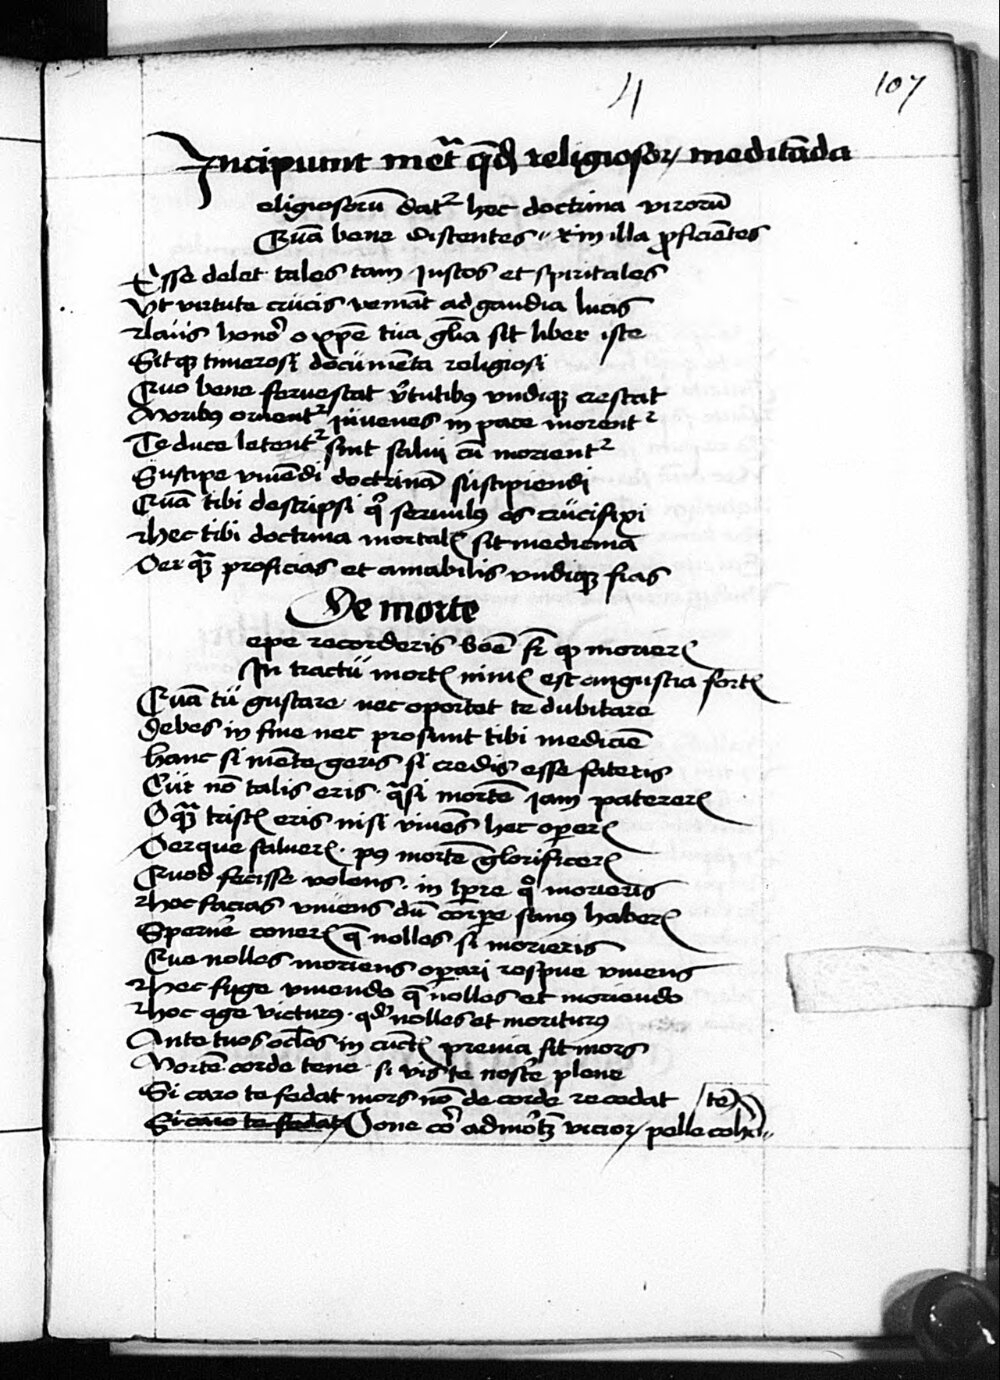 4
107
Incipiunt met̃ q̃dã religiosoꝝ meditãda
eligiosorũ datᷣ hec doctrina virorũ
Quã bene discentes et in illa ꝓficiẽtes
Esse debet tales tam iustos et spiritales
Ut virtute crucis veniãt ad gaudia lucis
laus honor o xp̃e tua gl̃ia sit liber iste
Sitqꝫ timerosi documẽta religiosi
Quo bene feruescat v̾tutibꝰ vndiqꝫ crescat
Moribꝰ ornentᷣ iuuenes in pace morentᷣ
Te duce letentᷣ sint salui cũ morientᷣ
Suscipe viuẽdi doctrinã suscipiendi
Quã tibi descripsi qͥ seruulꝰ es crucifixi
hec tibi doctrina mortalꝭ sit medicina
Per quã proficias et amabilis vndiqꝫ fias
De morte
epe recorderis boẽ fr̃ qꝫ morierꝭ
In tractu mortꝭ nimꝭ est angustia fortꝭ
Quã tu gustare nec oportet te dubitare
Debes in fine nec prosunt tibi mediciẽ
hanc si mẽte geris si credis esse fateris
Cur nõ talis eris quasi mortẽ iam patererꝭ
O quã tristꝭ eris nisi viuẽs hec operꝭ
Per que saluerꝭ pꝰ mortẽ glorificerꝭ
Quod fecisse volens in tp̃re quo morieris
hoc facias viuens dũ corꝑe sanꝰ haberꝭ
Sperne conerꝭ que nolles si morieris
Que nolles moriens oꝑari respue viuens
hec fuge viuendo que nolles et moriendo
hoc age victurꝰ qd̾ nolles et moriturꝰ
Ante tuos oc̃los in cunctꝭ preuia sit mors
Mortẽ corde tene si vis te nosse plene
Si caro te fedat mors nõ de corde recedat te
Si caro te fedat Pone cor̃ ad mortẽ vicioꝝ pelle coh